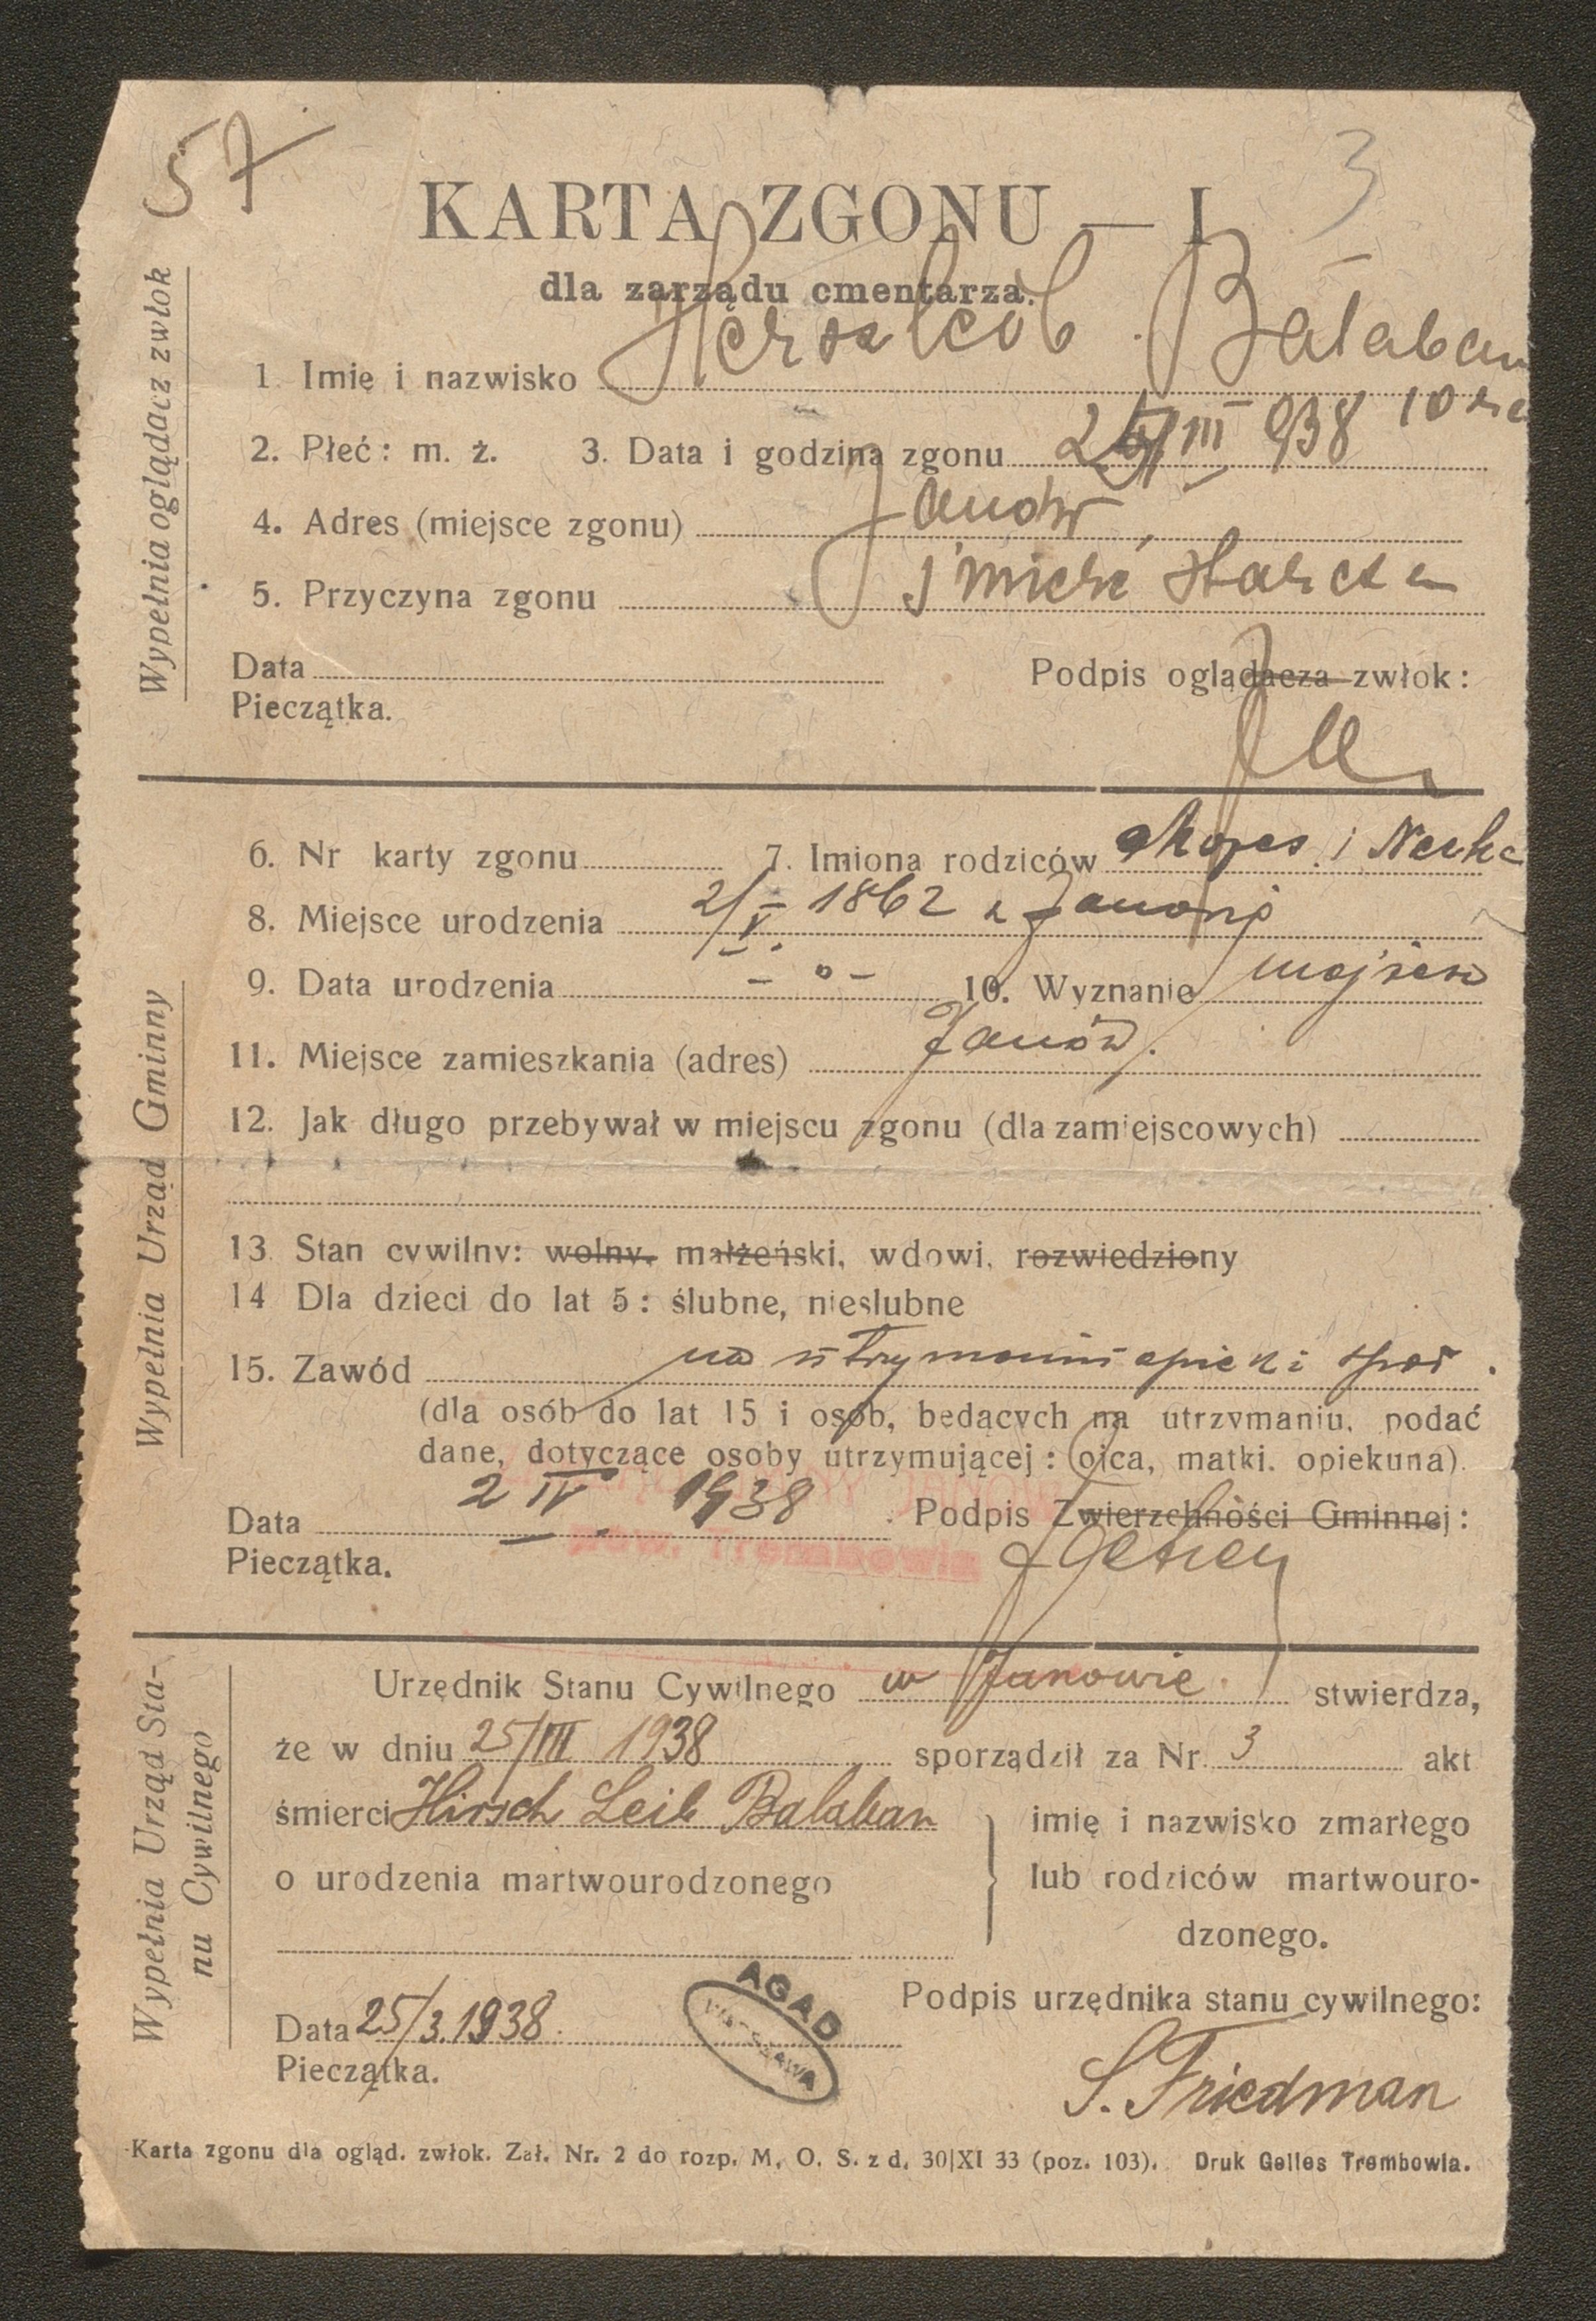 57
3
KARTA ZGONU — I
dla zarządu cmentarza.
Wypełnia oglądacz zwłok
1 Imię i nazwisko Herszleib Bałaban
2. Płeć: m. ż. 3. Data i godzina zgonu III 938 10
4. Adres (miejsce zgonu) Janów
5. Przyczyna zgonu śmierć starcza
Data Podpis oglądacza zwłok:
Pieczątka.
Wypełnia Urząd Gminny
6. Nr karty zgonu 7. Imiona rodziców Mojżes i
8. Miejsce urodzenia 2/V 1862
9. Data urodzenia - " - 10. Wyznanie mojżesz
11. Miejsce zamieszkania (adres) Janów.
12. Jak długo przebywał w miejscu zgonu (dla zamiejscowych)
13 Stan cywilny: wolny, małżeński, wdowi, rozwiedziony
14 Dla dzieci do lat 5: ślubne, nieslubne
15. Zawód na utrzymaniu opieki społ.
(dla osób do lat 15 i osób, będących na utrzymaniu, podać
dane, dotyczące osoby utrzymującej: ojca, matki, opiekuna).
Data 2 IV. 1938 Podpis Zwierzchności Gminnej:
pow. Trembowla
Pieczątka.
Wypełnia Urząd Sta-
nu Cywilnego
Urzędnik Stanu Cywilnego w Janowie stwierdza,
że w dniu 25/III 1938 sporządził za Nr. 3 akt
śmierci Hirsch Leib Balaban imię i nazwisko zmarłego
o urodzenia martwourodzonego lub rodziców martwouro-
dzonego.
Podpis urzędnika stanu cywilnego:
Data 25/3.1938.
AGAD
WARSZAWA
Pieczątka.
S. Friedman
Karta zgonu dla ogląd. zwłok. Zał. Nr. 2 do rozp. M. O. S. z d. 30|XI 33 (poz. 103). Druk Gelles Trembowla.